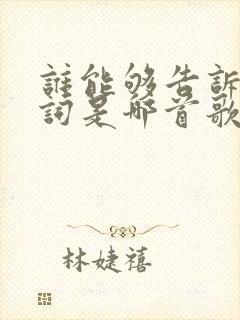 誰能够告訴
詞是哪首歌
林婕禧